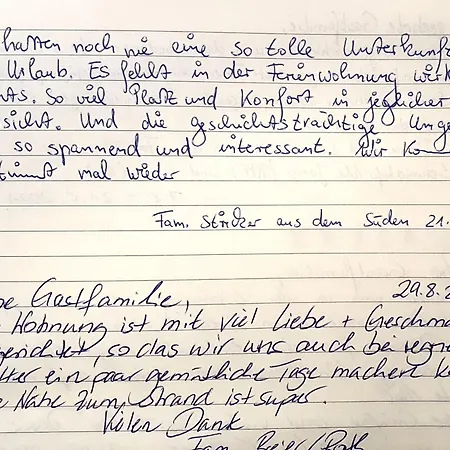 hatten noch nie eine so tolle Unterkunf
Urlaub. Es fehlt in der Ferienwohnung wirk
ts. So viel Platz und Komfort in jeglicher
sicht. Und die geschichtsträchtige Umge
so spannend und interessant. Wir Ko
timmt mal wieder
Fam. aus dem Süden 21.
be Gastfamilie, 29.8.2
Wohnung ist mit viel Liebe + Geschma
gerichtet, so das wir uns auch bei regne
tter ein paar gemütliche Tage machen k
e Nähe zum Strand ist super.
Vielen Dank
Fam.